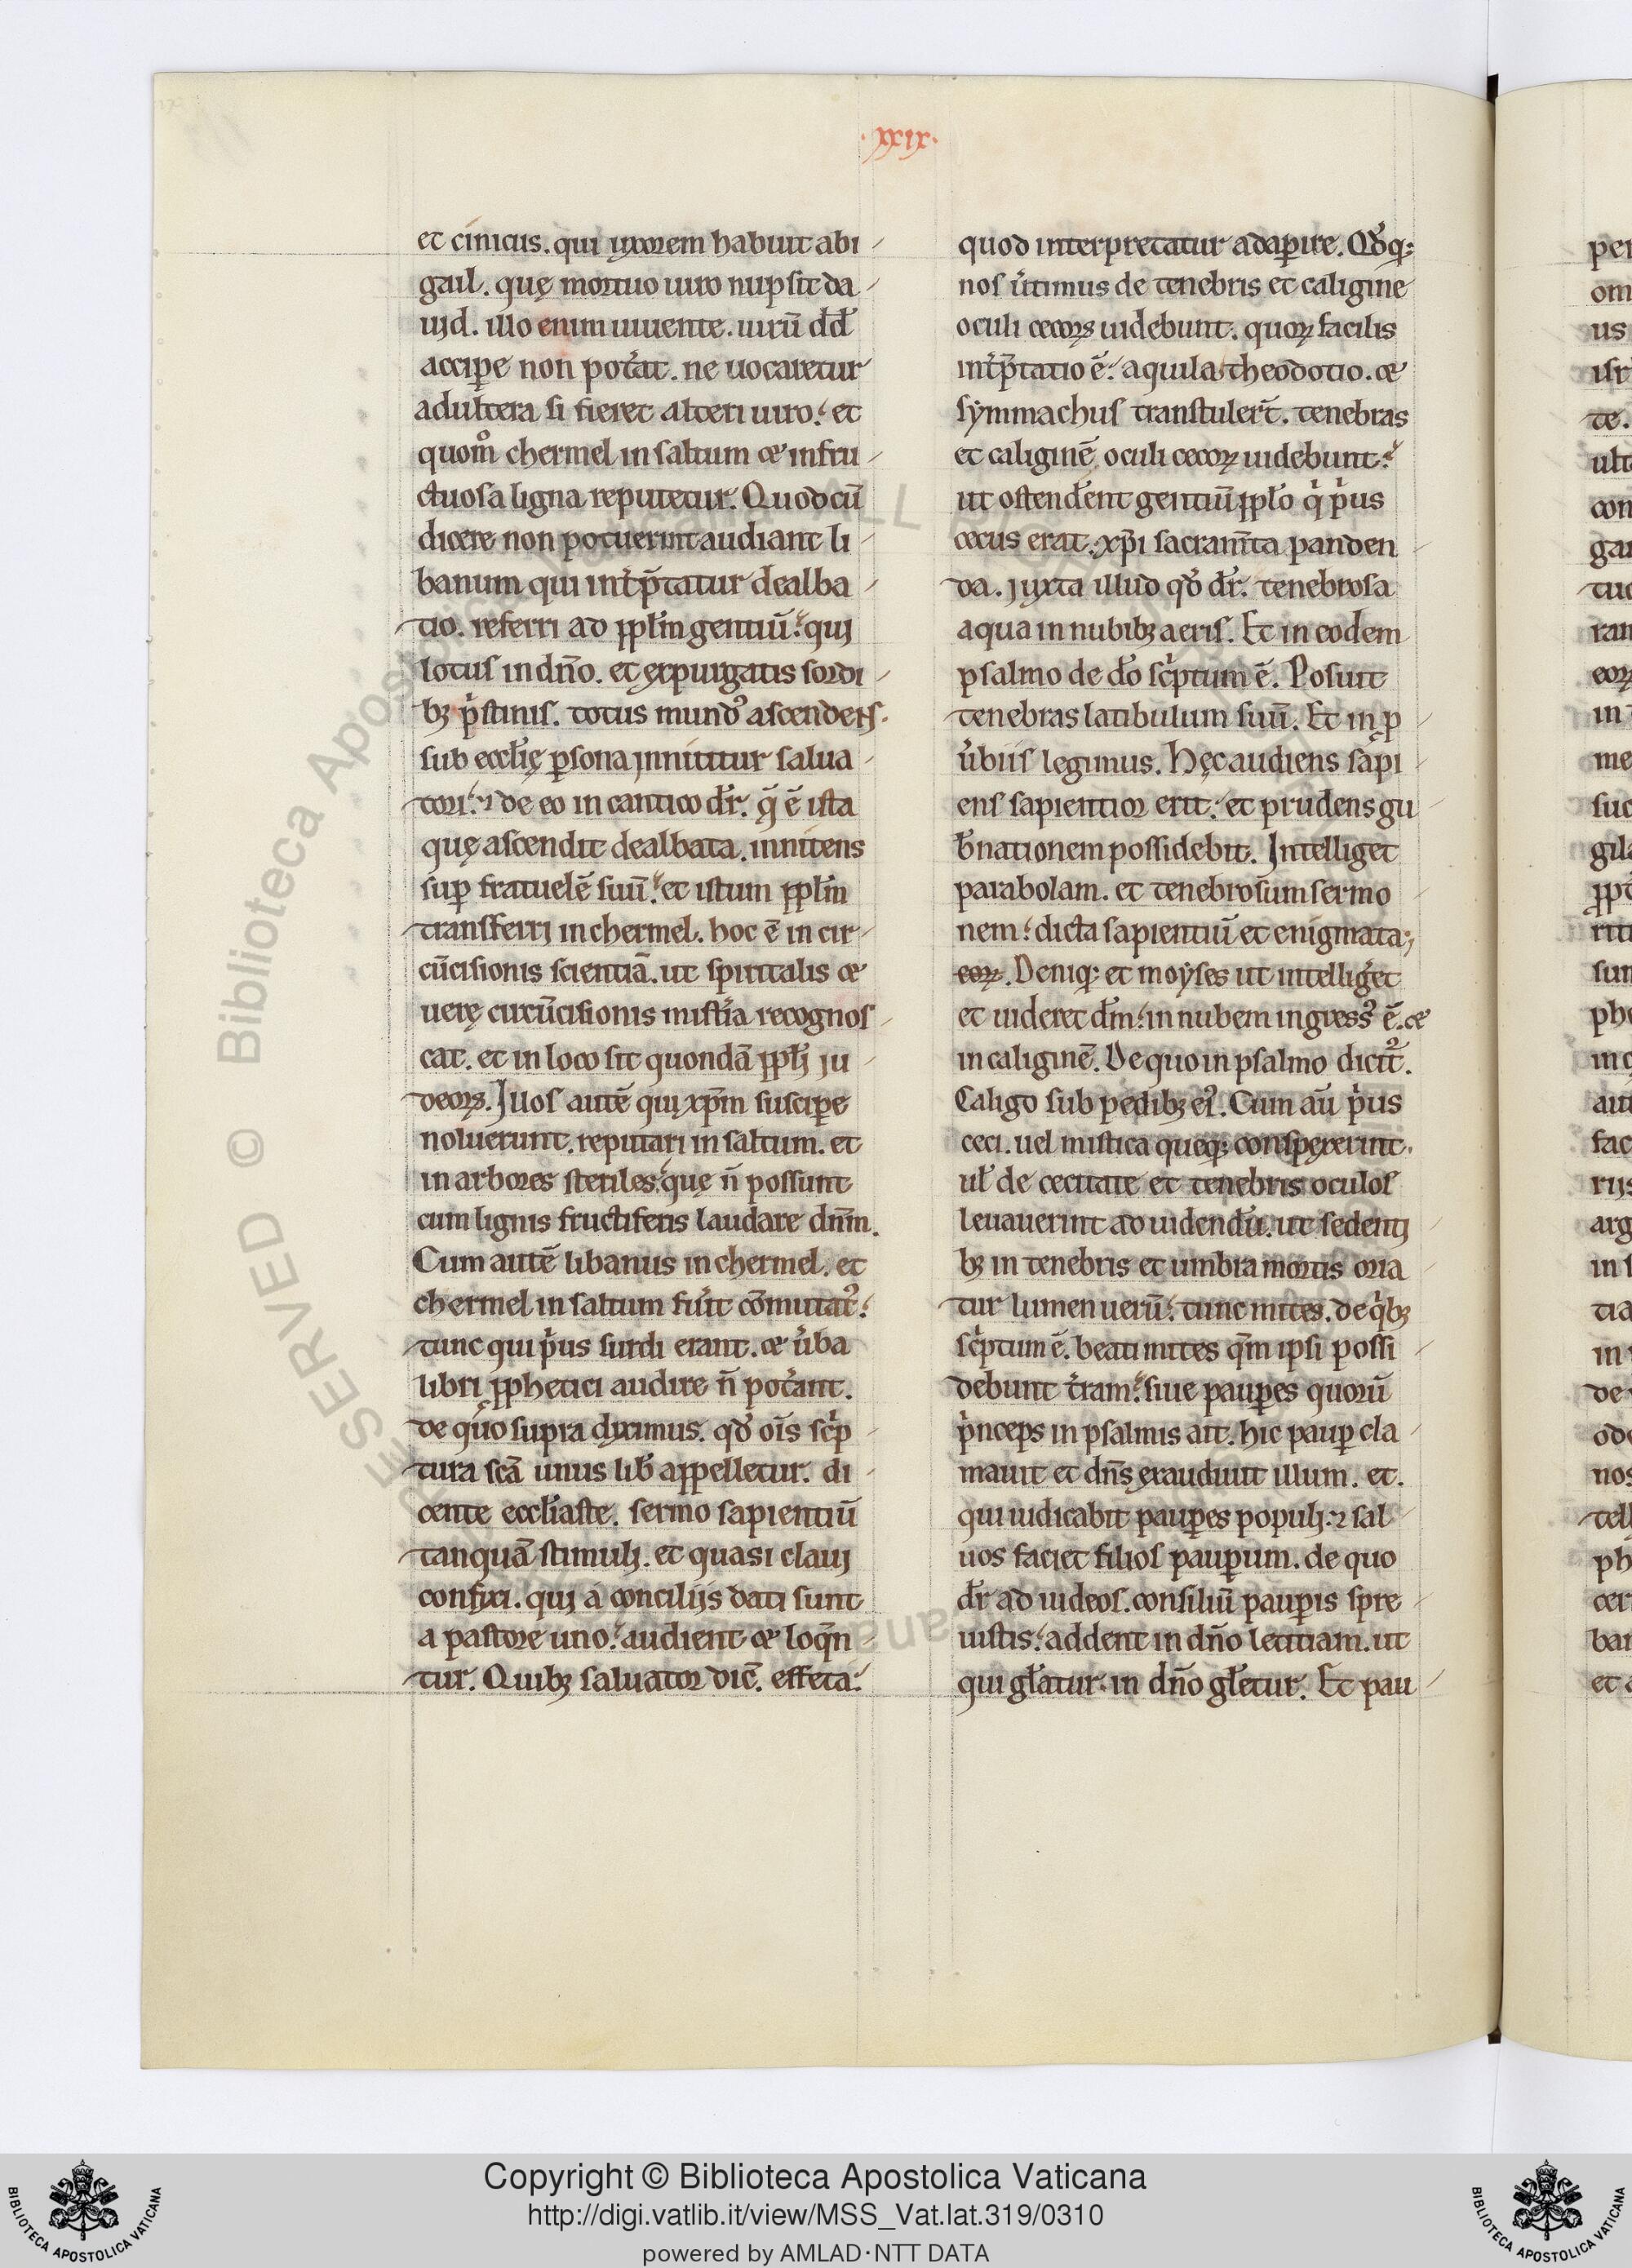 ·xxix·
et cinicus. qui uxorem habuit abi
gail. quę mortuo uiro nupsit da
uid. illo enim uiuente. uirū dd̄
accipe non pot̓at. ne uocaretur
adultera si fieret alteri uiro. et
quom̊ chermel in saltum & infru
ctuosa ligna reputetur. Quod cū
dicere non potuerint audiant li
banum qui int̓p̄tatur dealba
tio. referri ad ppl̄m gentiū. qui
lotus in dn̄o. et expurgatis sordi
bꝫ p̓stinis. totus mundꝰ ascendens
sub eccl̄ię ꝑsona innititur salua
tori. ⁊ de eo in cantico dr̄. q̄ ē ista
quę ascendit dealbata. innitens
suꝑ fratuelē suū. et istum ppl̄m
transferri in chermel. hoc ē in cir
cūcisionis scientiā. ut spiritalis &
uerę circūcisionis mist̓ia recognos
cat. et in loco sit quondā ppl̄i iu
deoꝝ. Illos autē qui xp̄m suscipe
noluerunt. reputari in saltum. et
in arbores steriles. quę n̄ possunt
cum lignis fructiferis laudare dn̄m.
Cum autē libanus in chermel. et
chermel in saltum fu̓it cōmutatꝰ.
tunc qui p̓us surdi erant. & u̓ba
libri ꝓphetici audire n̄ pot̓ant.
de quo supra diximus. qd̓ oīs sc̓p
tura scā unus lib̓ appelletur. di
cente eccl̄iaste. sermo sapientiū
tanquā stimuli. et quasi claui
confixi. qui a conciliis dati sunt
a pastore uno. audient & loq̄n
tur. Quibꝫ saluator dic̄. effeta.
quod interpretatur adaꝑire. Qd̓qꝫ
nos u̓timus de tenebris et caligine
oculi cecoꝝ uidebunt. quoꝝ facilis
int̓p̄tatio ē. aquila. theodotio. &
symmachus transtuler̄t. tenebras
et caliginē oculi cecoꝝ uidebunt.
ut ostend̓ent gentiū ppl̄o q̓ p̓us
cecus erat. xp̄i sacram̄ta panden
da. iuxta illud qd̓ dr̄. tenebrosa
aqua in nubibꝫ aeris. Et in eodem
psalmo de dō sc̓ptum ē. Posuit
tenebras latibulum suū. Et in ꝓ
u̓biis legimus. Hęc audiens sapi
ens sapientior erit. et prudens gu
b̓nationem possidebit. Intelliget
parabolam. et tenebrosum sermo
nem. dicta sapientiū et enigmata
eoꝝ. Deniqꝫ et moyses ut intellig̓et
et uideret dm̄. in nubem ingressꝰ ē. &
in caliginē. De quo in psalmo dicit̉.
Caligo sub pedibꝫ eiꝰ. Cum aū p̓us
ceci. uel mistica queqꝫ conspexerint.
ul̓ de cecitate et tenebris oculos
leuauerint ad uidendū. ut sedenti
bꝫ in tenebris et umbra mortis oria
tur lumen uerū. tunc mites. de q̓bꝫ
sc̓ptum ē. beati mites qm̄ ipsi possi
debunt t̓ram. siue pauꝑes quorū
p̓nceps in psalmis ait. hic pauꝑ cla
mauit et dn̄s exaudiuit illum. et.
qui iudicabit pauꝑes populi. ⁊ sal
uos faciet filios pauꝑum. de quo
dr̄ ad iudeos. consiliū pauꝑis spre
uistis. addent in dn̄o letitiam. ut
qui gl̓atur. in dn̄o gl̓etur. Et pau
Copyright © Biblioteca Apostolica Vaticana
http://digi.vatlib.it/view/MSS_Vat.lat.319/0310
powered by AMLAD·NTT DATA
BIBLIOTECA APOSTOLICA VATICANA
BIBLIOTECA APOSTOLICA VATICANA